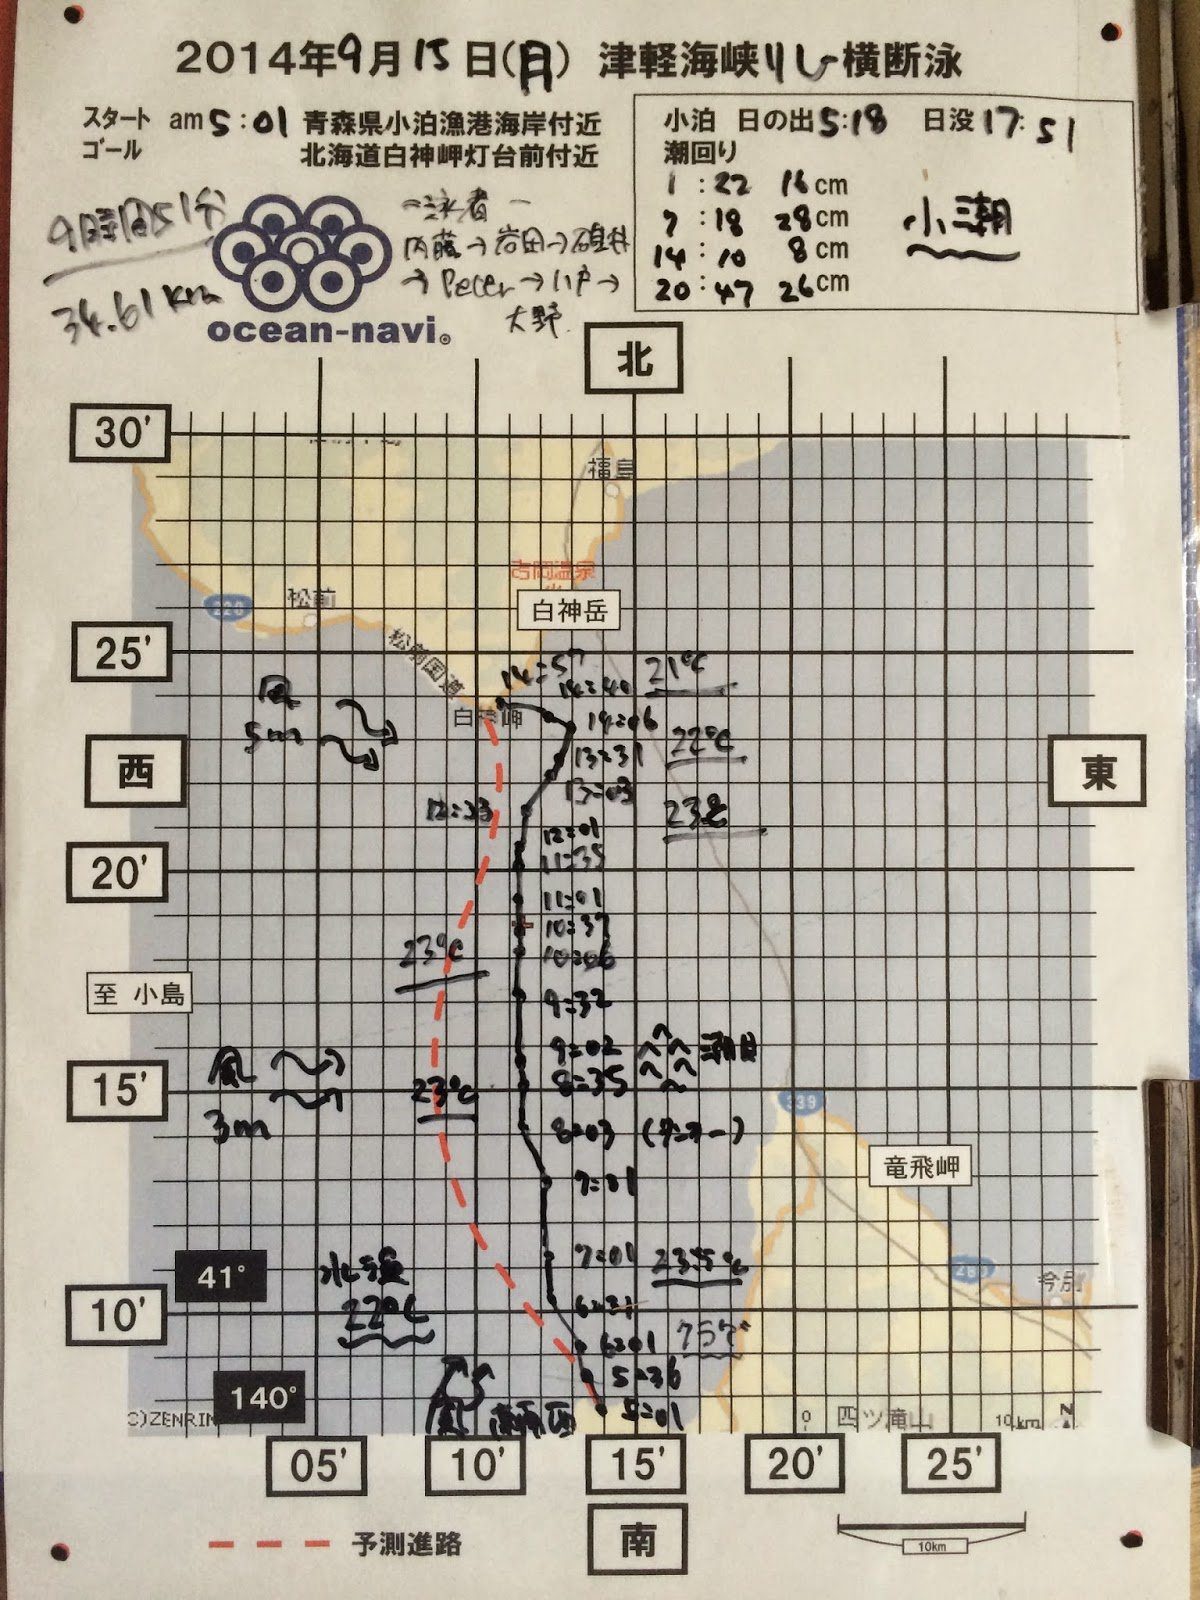 2014年9月15日(月) 津軽海峡リレー横断泳
スタート am 5:01 青森県小泊漁港海岸付近
ゴール 北海道白神岬灯台前付近
小泊 日の出 5:18 日没 17:51
潮回り
1:22 16cm
7:18 28cm
14:10 8cm
20:47 26cm
小潮
9時間51分
34.61km
ー泳者ー
内藤→岩田→碓井
→Peter→
大野
ocean-navi®
北
30'
福島
吉岡温泉
白神岳
松前
228
25'
松前国道
白神岬
14:57
14:40
21℃
風
5m
14:06
22℃
13:31
西
東
13:03
12:33
23℃
12:01
11:35
20'
11:01
10:37
10:06
23℃
9:32
至 小島
9:02
潮目
8:35
15'
23℃
風
3m
339
8:03
竜飛岬
7:01
7:01
23.5℃
41°
水温
22℃
今別
10'
6:31
6:01
5:36
140°
風
5:01
(C)ZENRIN
四ツ滝山
0
10km
N
05'
10'
15'
20'
25'
南
予測進路
10km